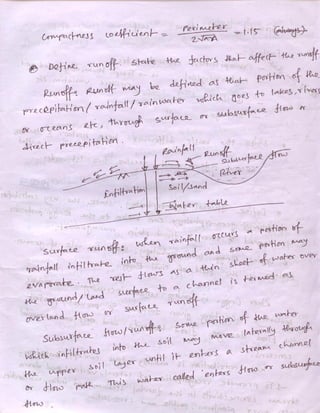 Compactness coefficient = Perimeter / 2√πA = 1.15 (always)
Define runoff State the factors that affect the runoff
Runoff, Runoff may be defined as that portion of the
precepitation / rainfall / rainwater which goes to lakes, rivers
or oceans etc, through surface or subsurface flow or
direct precepitation.
Rainfall
Runoff
Subsurface flow
River
Infiltration
Soil/Sand
Water table
Surface runoff: when rainfall occurs a portion of
rainfall infiltrate into the ground and some portion may
evaporate. The rest flows as a thin sheet of water over
the ground/land surface to a channel is termed as
overland flow or surface runoff
Subsurface flow/runoff: Some portion of the water
which infiltrates into the soil may move laterally through
the upper soil layer until it enters a stream channel
or flow path. This water called enters flow or subsurface
flow.